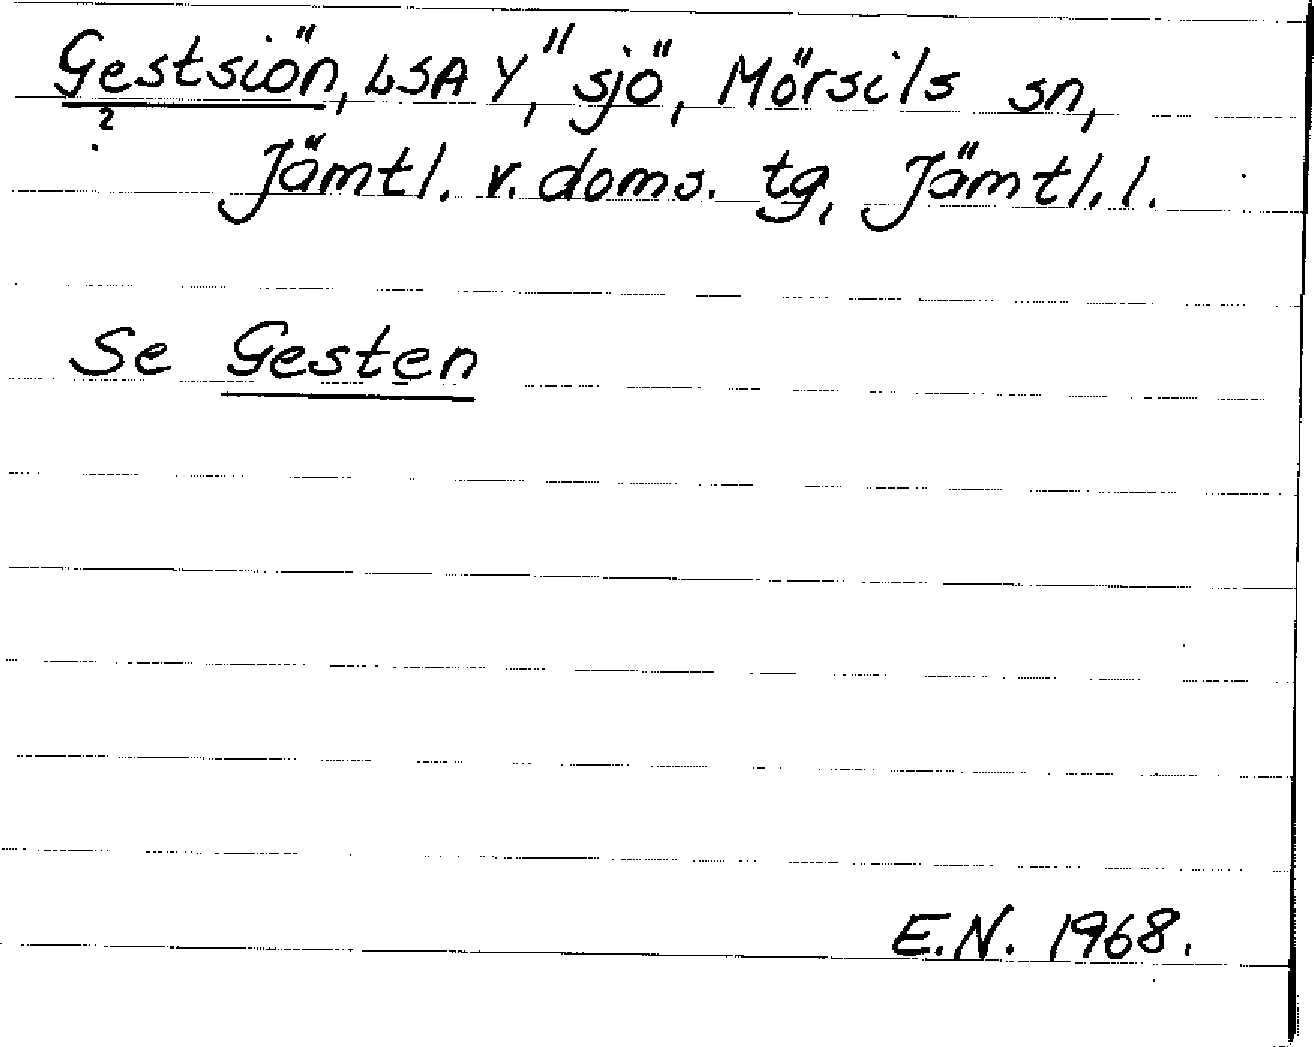 Gestsiön, LSA Y," sjö, Mörsils sn,
2
Jämtl. v. doms. tg, Jämtl. l.
Se Gesten
E.N. 1968.